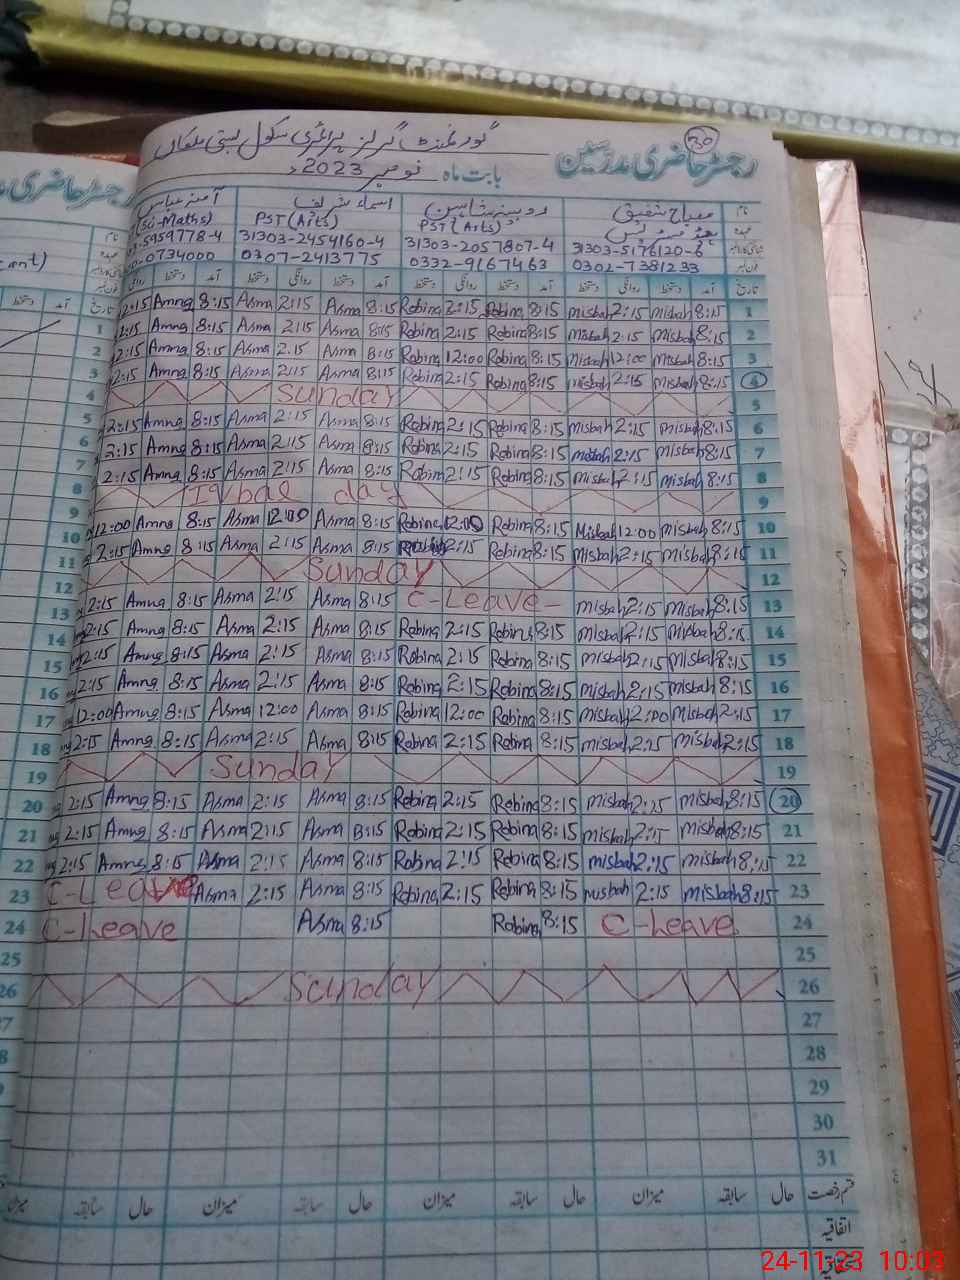 30
گورنمنٹ گرلز پرائمری سکول بستی ملکاں
رجسٹر حاضری مدرسین
بابت ماہ نومبر 2023ء
نام مصباح شفیق روبینہ شاہین اسماء شریف آمنہ عباس
عہدہ ہیڈ مسٹریس PST (Arts) PST (Arts) (Sci-Maths)
31303-5176120-6 31303-2057807-4 31303-2454160-4 5959778-4
0302-7381233 0332-9167463 0307-2413775 0734000
تاریخ آمد دستخط روانگی دستخط آمد دستخط روانگی دستخط آمد دستخط روانگی دستخط آمد دستخط روانگی
2:15 Amna 8:15 Asma 2:15 Asma 8:15 Robina 2:15 Robina 8:15 misbah 2:15 misbah 8:15 1
2:15 Amna 8:15 Asma 2:15 Asma 8:15 Robina 2:15 Robina 8:15 Misbah 2:15 Misbah 8:15 2
2:15 Amna 8:15 Asma 2:15 Asma 8:15 Robina 12:00 Robina 8:15 Misbah 12:00 Misbah 8:15 3
2:15 Amna 8:15 Asma 2:15 Asma 8:15 Robina 2:15 Robina 8:15 misbah 2:15 misbah 8:15 4
Sunday 5
2:15 Amna 8:15 Asma 2:15 Asma 8:15 Robina 2:15 Robina 8:15 misbah 2:15 misbah 8:15 6
2:15 Amna 8:15 Asma 2:15 Asma 8:15 Robina 2:15 Robina 8:15 misbah 2:15 misbah 8:15 7
2:15 Amna 8:15 Asma 2:15 Asma 8:15 Robina 2:15 Robina 8:15 misbah 2:15 misbah 8:15 8
Iqbal day 9
12:00 Amna 8:15 Asma 12:00 Asma 8:15 Robina 12:00 Robina 8:15 Misbah 12:00 misbah 8:15 10
2:15 Amna 8:15 Asma 2:15 Asma 8:15 Robina 2:15 Robina 8:15 misbah 2:15 misbah 8:15 11
Sunday 12
2:15 Amna 8:15 Asma 2:15 Asma 8:15 C-Leave- misbah 2:15 misbah 8:15 13
2:15 Amna 8:15 Asma 2:15 Asma 8:15 Robina 2:15 Robina 8:15 misbah 2:15 misbah 8:15 14
2:15 Amna 8:15 Asma 2:15 Asma 8:15 Robina 2:15 Robina 8:15 misbah 2:15 misbah 8:15 15
2:15 Amna 8:15 Asma 2:15 Asma 8:15 Robina 2:15 Robina 8:15 misbah 2:15 misbah 8:15 16
12:00 Amna 8:15 Asma 12:00 Asma 8:15 Robina 12:00 Robina 8:15 Misbah 12:00 misbah 2:15 17
2:15 Amna 8:15 Asma 2:15 Asma 8:15 Robina 2:15 Robina 8:15 misbah 2:15 misbah 2:15 18
Sunday 19
2:15 Amna 8:15 Asma 2:15 Asma 8:15 Robina 2:15 Robina 8:15 misbah 2:15 misbah 8:15 20
2:15 Amna 8:15 Asma 2:15 Asma 8:15 Robina 2:15 Robina 8:15 misbah 2:15 misbah 8:15 21
2:15 Amna 8:15 Asma 2:15 Asma 8:15 Robina 2:15 Robina 8:15 misbah 2:15 misbah 8:15 22
C-Leave Asma 2:15 Asma 8:15 Robina 2:15 Robina 8:15 misbah 2:15 misbah 8:15 23
C-Leave Asma 8:15 Robina 8:15 C-Leave 24
25
Sunday 26
27
28
29
30
31
قسم رخصت حال سابقہ میزان حال سابقہ میزان حال سابقہ میزان حال سابقہ میزان
اتفاقیہ
24-11-23 10:03